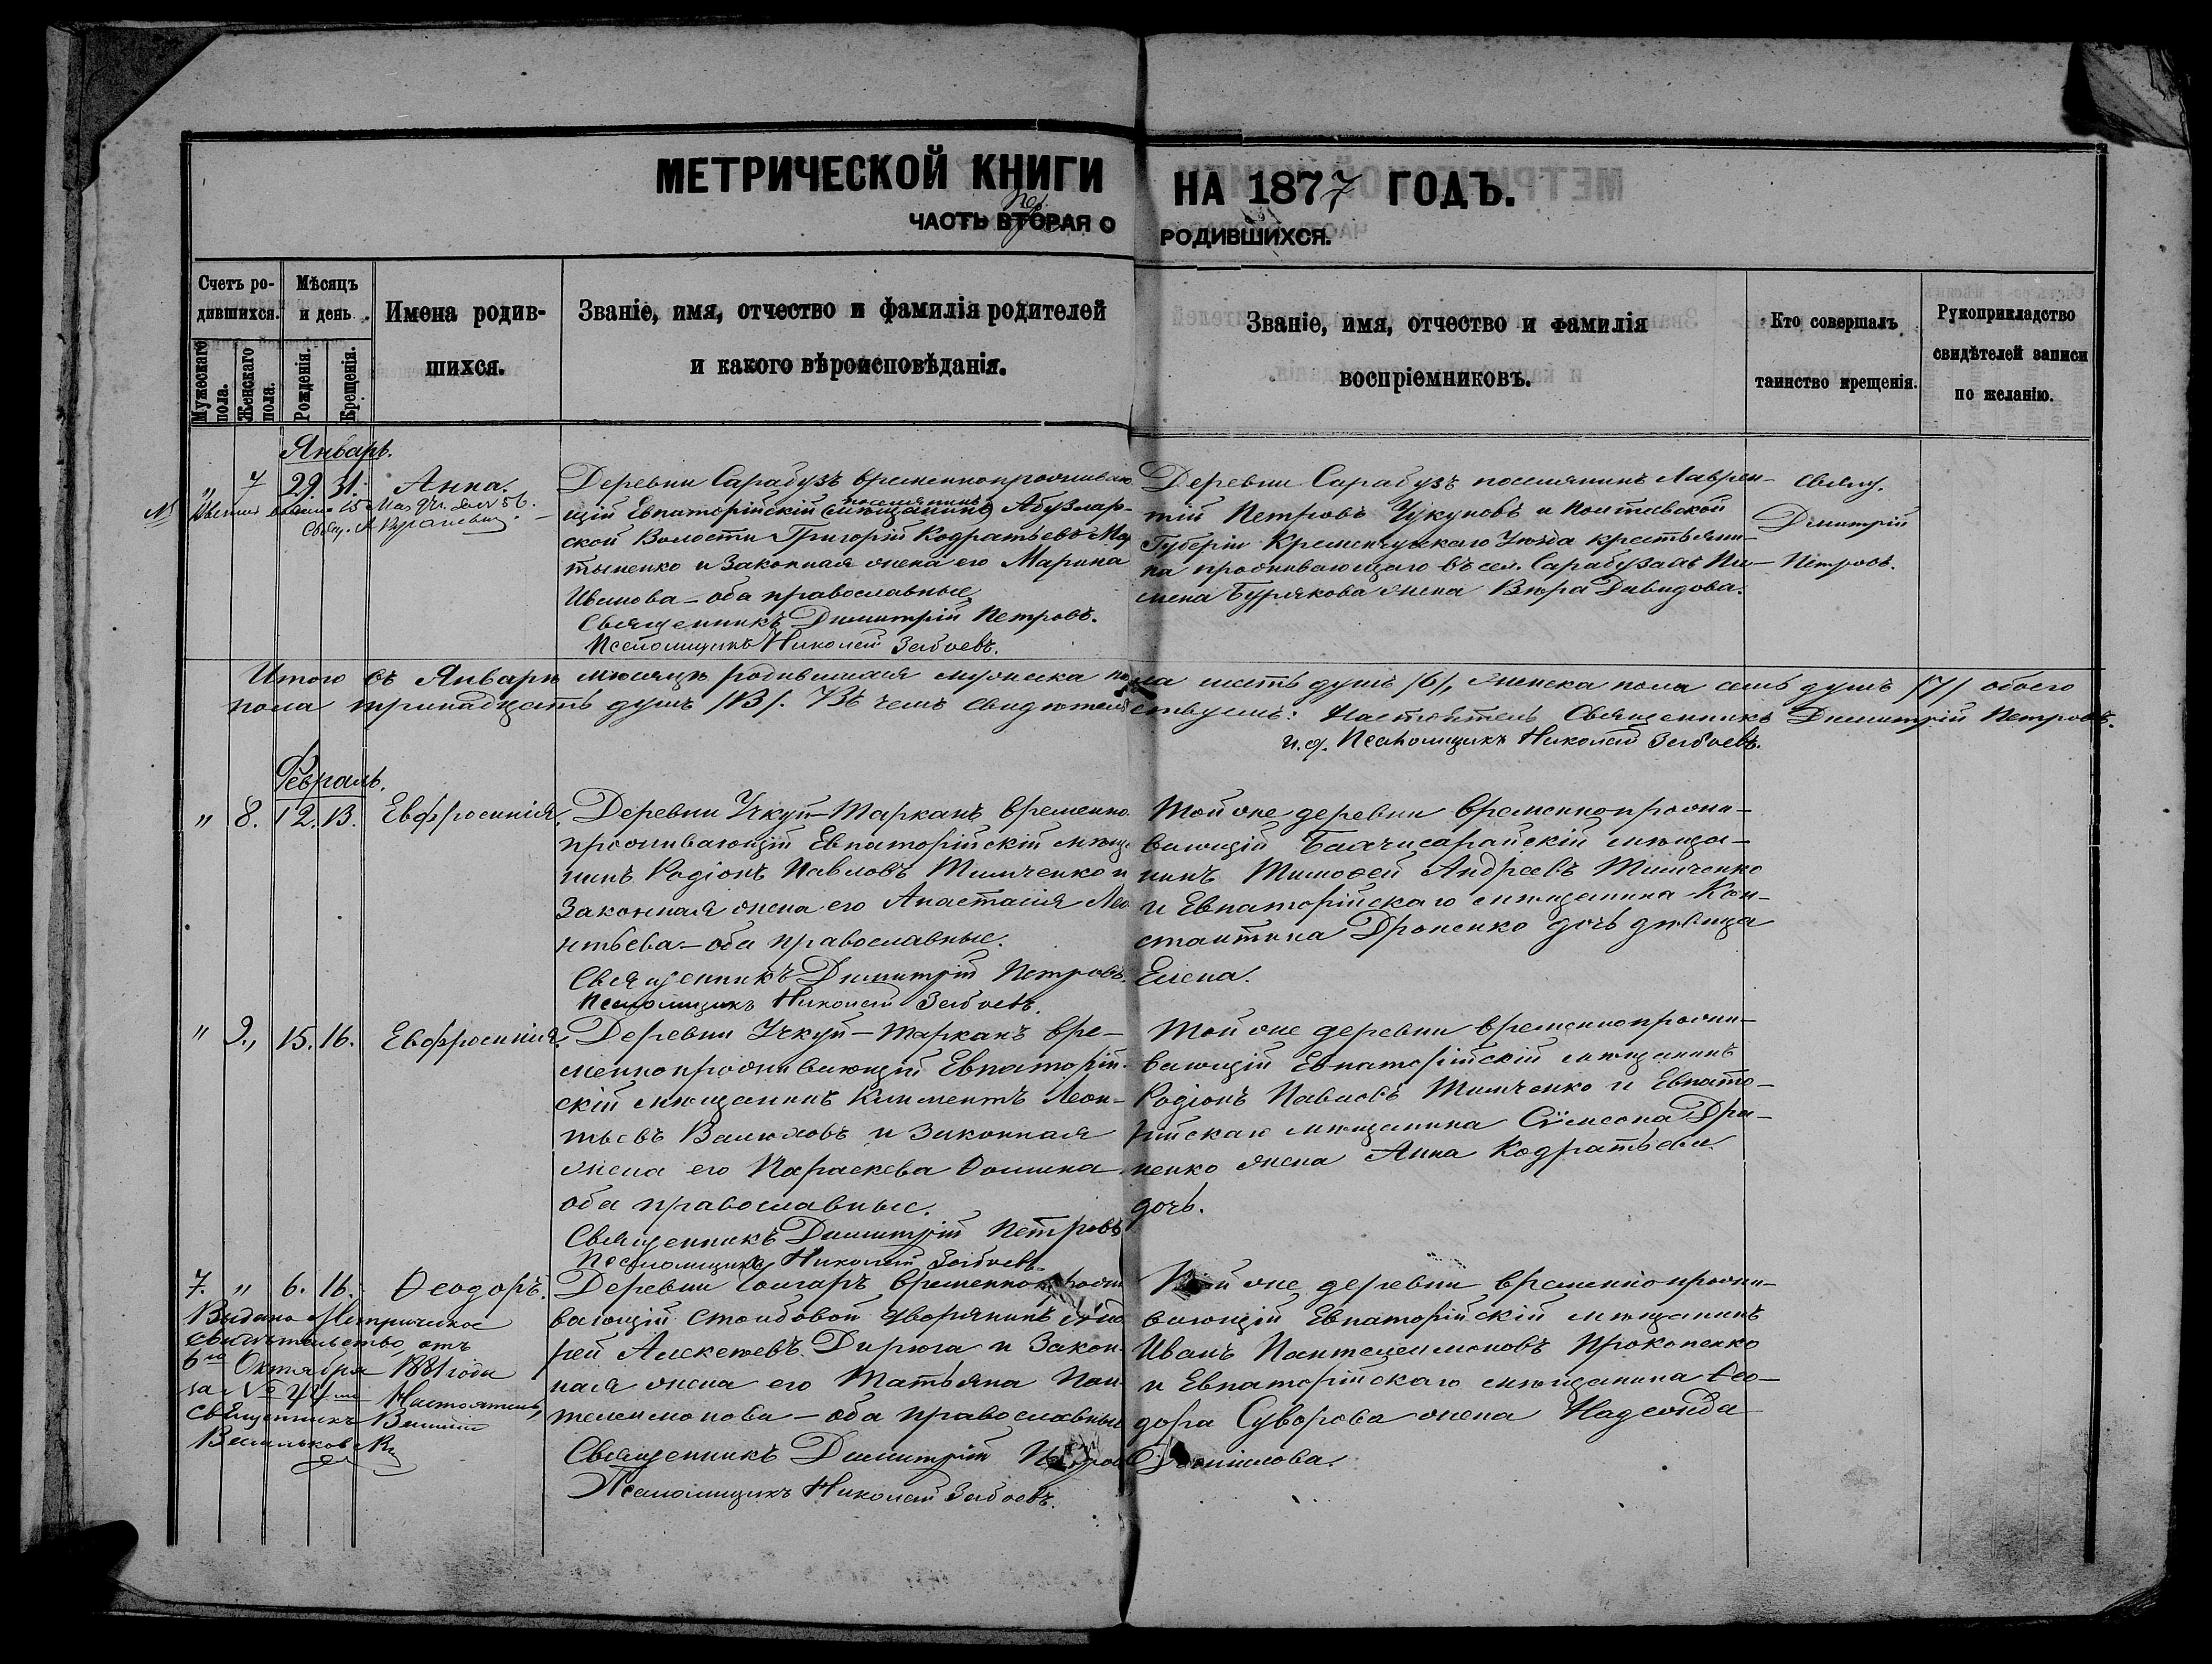 МЕТРИЧЕСКОЙ КНИГИ НА 1877 ГОДЪ.
ЧАСТЬ ВТОРАЯ О РОДИВШИХСЯ.
Счетъ ро-
дившихся.
Мужескаго пола.
Женскаго пола.
Мѣсяцъ
и день.
Рожденія.
Крещенія.
Имена родив-
шихся.
Званіе, имя, отчество и фамилія родителей
и какого вѣроисповѣданія.
Званіе, имя, отчество и фамилія
воспріемниковъ.
Кто совершалъ
таинство крещенія.
Рукоприкладство
свидѣтелей записи
по желанію.
Январь.
" 7 29. 31. Анна.
Деревни Сарабузъ временнопроживаю
щій Евпаторійскій (мѣщанинъ) поселянинъ Абузлар-
ской Волости Григорій Кодратьевъ Мар
тыненко и Законная жена его Марина
Иванова – оба православные
Священникъ Димитрій Петровъ.
Псаломщикъ Николай Забоевъ.
Деревни Сарабузъ поселянинъ Лаврен-
тій Петровъ Чукуновъ и Полтавской
Губерніи Кременчугскаго Уѣзда крестьяни-
на проживающаго въ сел. Сарабузахъ Пи-
мена Бурлкова жена Вѣра Давидова.
Свящ.
Димитрій
Петровъ.
Итого въ Январѣ мѣсяцѣ родившихся мужеска пола шесть душъ /6/, женска пола семь душъ /7/ обоего
пола тринадцать душъ /13/. Въ чемъ свидѣтельствуемъ: Настоятель Священникъ Димитрій Петровъ.
и. д. Псаломщикъ Николай Забоевъ.
Февраль.
" 8. 12. 13. Евфросинія.
Деревни Учкуй-Тарханъ временно
проживающій Евпаторійскій мѣща
нинъ Родіонъ Павловъ Тимченко и
Законная жена его Анастасія Лео
нтьева – оба православные.
Священникъ Димитрій Петровъ.
Псаломщикъ Николай Забоевъ.
Той же деревни временнопрожи-
вающій Бахчисарайскій мѣща-
нинъ Тимофей Андреевъ Тимченко
и Евпаторійскаго мѣщанина Кон-
стантина Дроненко дочь дѣвица
Елена.
" 9. 15. 16. Евфросинія.
Деревни Учкуй-Тарханъ вре-
меннопроживающій Евпаторій-
скій мѣщанинъ Климентъ Леон-
тьевъ Валюховъ и Законная
жена его Параскева Фомина
оба православные.
Священникъ Димитрій Петровъ
Псаломщикъ Николай Забоевъ.
Той же деревни временнопрожи-
вающій Евпаторійскій мѣщанинъ
Родіонъ Павловъ Тимченко и Евпато-
рійскаго мѣщанина Сѵмеона Дра-
ненко жена Анна Кодратьева
дочь.
7. " 6. 16. Ѳеодоръ.
Выдано Метрическое
свидѣтельство отъ
6го Октября 1881 года
за № 44 Настоятель,
священникъ Веніаминъ
Деревни временнопрожи
вающій столбовой дворянинъ Анд
рей Алексѣевъ Дирюга и Закон-
ная жена его Татьяна Пан-
телеимонова – оба православные
Священникъ Димитрій Петровъ
Псаломщикъ Николай Забоевъ.
Той же деревни временнопрожи-
вающій Евпаторійскій мѣщанинъ
Иванъ Пантелеимоновъ Прокопенко
и Евпаторійскаго мѣщанина Ѳео-
дора Суворова жена Надежда
Даниилова.